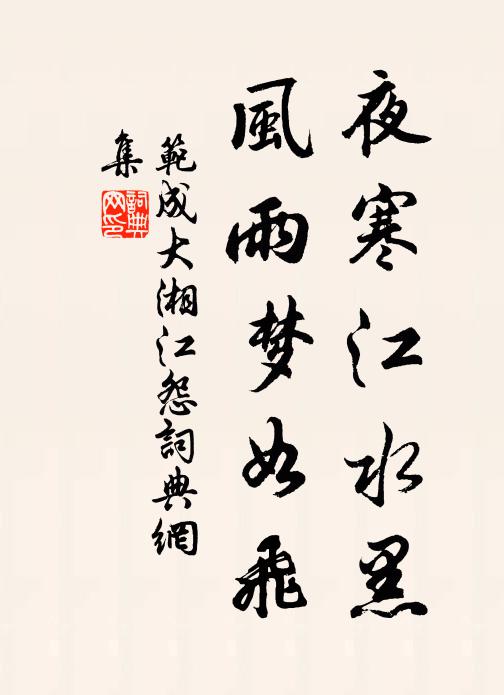 夜寒江水黑
風雨梦如飛
範成大湘江怨詞典網
集
詞典
网印